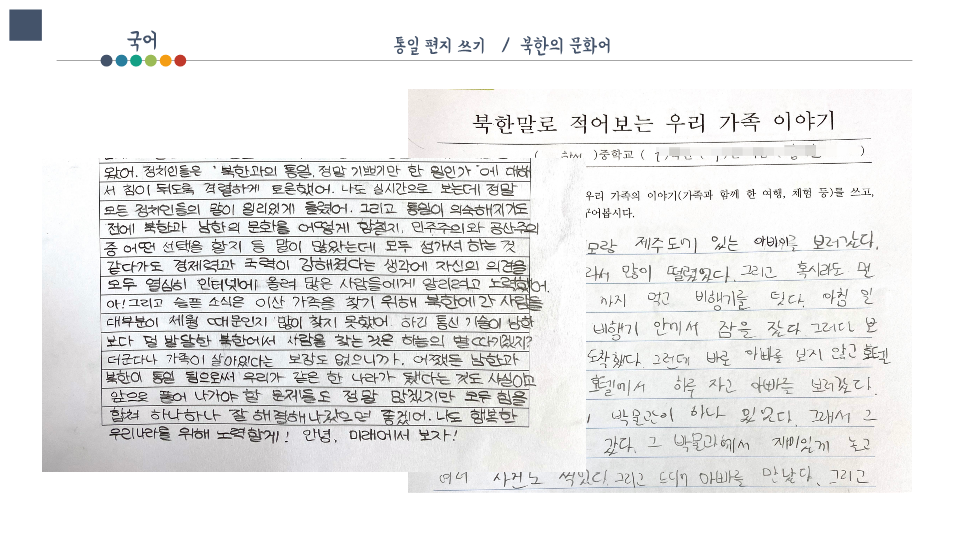 국어
통일 편지 쓰기 / 북한의 문화어
왔어. 정치인들은 '북한과의 통일, 정말 기쁘기만 한 일인가'에 대해
서 침이 튀도록 격렬하게 토론했어. 나도 실시간으로 보는데 정말
모든 정치인들의 말이 일리있게 들렸어. 그리고 통일이 익숙해지기도
전에 북한과 남한의 문화를 어떻게 합칠지, 민주주의와 공산주의
중 어떤 선택을 할지 등 말이 많았는데 모두 섬가셔 하는 것
같다가도 경제력과 국력이 강해졌다는 생각에 자신의 의견을
모두 열심히 인터넷에 올려 많은 사람들에게 알리려고 노력했어.
아! 그리고 슬픈 소식은 이산 가족을 찾기 위해 북한에 간 사람들
대부분이 세월 때문인지 많이 찾지 못했어. 하긴 통신 기술이 남한
보다 덜 발달한 북한에서 사람을 찾는 것은 하늘의 별 따기겠지?
더군다나 가족이 살아있다는 보장도 없으니까. 어쨌든 남한과
북한이 통일 됨으로써 우리가 같은 한 나라가 됐다는 것도 사실이고
앞으로 풀어 나가야 할 문제들도 정말 많겠지만 모두 힘을
합쳐 하나하나 잘 해결해나갔으면 좋겠어. 나도 행복한
우리나라를 위해 노력할게! 안녕, 미래에서 보자!
북한말로 적어보는 우리 가족 이야기
( )중학교 ( )
우리 가족의 이야기(가족과 함께 한 여행, 체험 등)를 쓰고,
어봅시다.
모랑 제주도에 있는 아바이를 보러갔다.
라서 많이 떨렸었다. 그리고 혹시라도 먼
까지 먹고 비행기를 탔다. 아침 일
비행기 안에서 잠을 잤다 그러다 보
도착했다. 그런데 바로 아빠를 보지 않고 호텔
호텔에서 하루 자고 아빠를 보러갔다.
박물관이 하나 있었다. 그래서 그
갔다. 그 박물관에서 재미있게 놀고
사진도 찍었다. 그리고 드디어 아빠를 만났다. 그리고